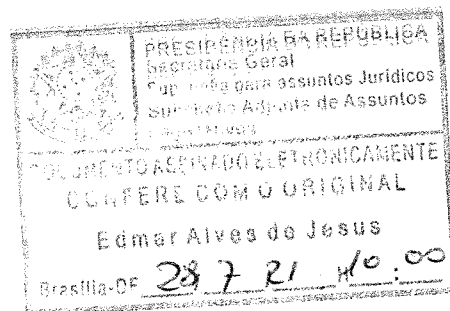 PRESIDÊNCIA DA REPÚBLICA
Secretaria Geral
para assuntos Jurídicos
Adjunta de Assuntos
DOCUMENTO ASSINADO ELETRONICAMENTE
CONFERE COM O ORIGINAL
Edmar Alves de Jesus
Brasília-DF 28, 7 21 H 10 : 00